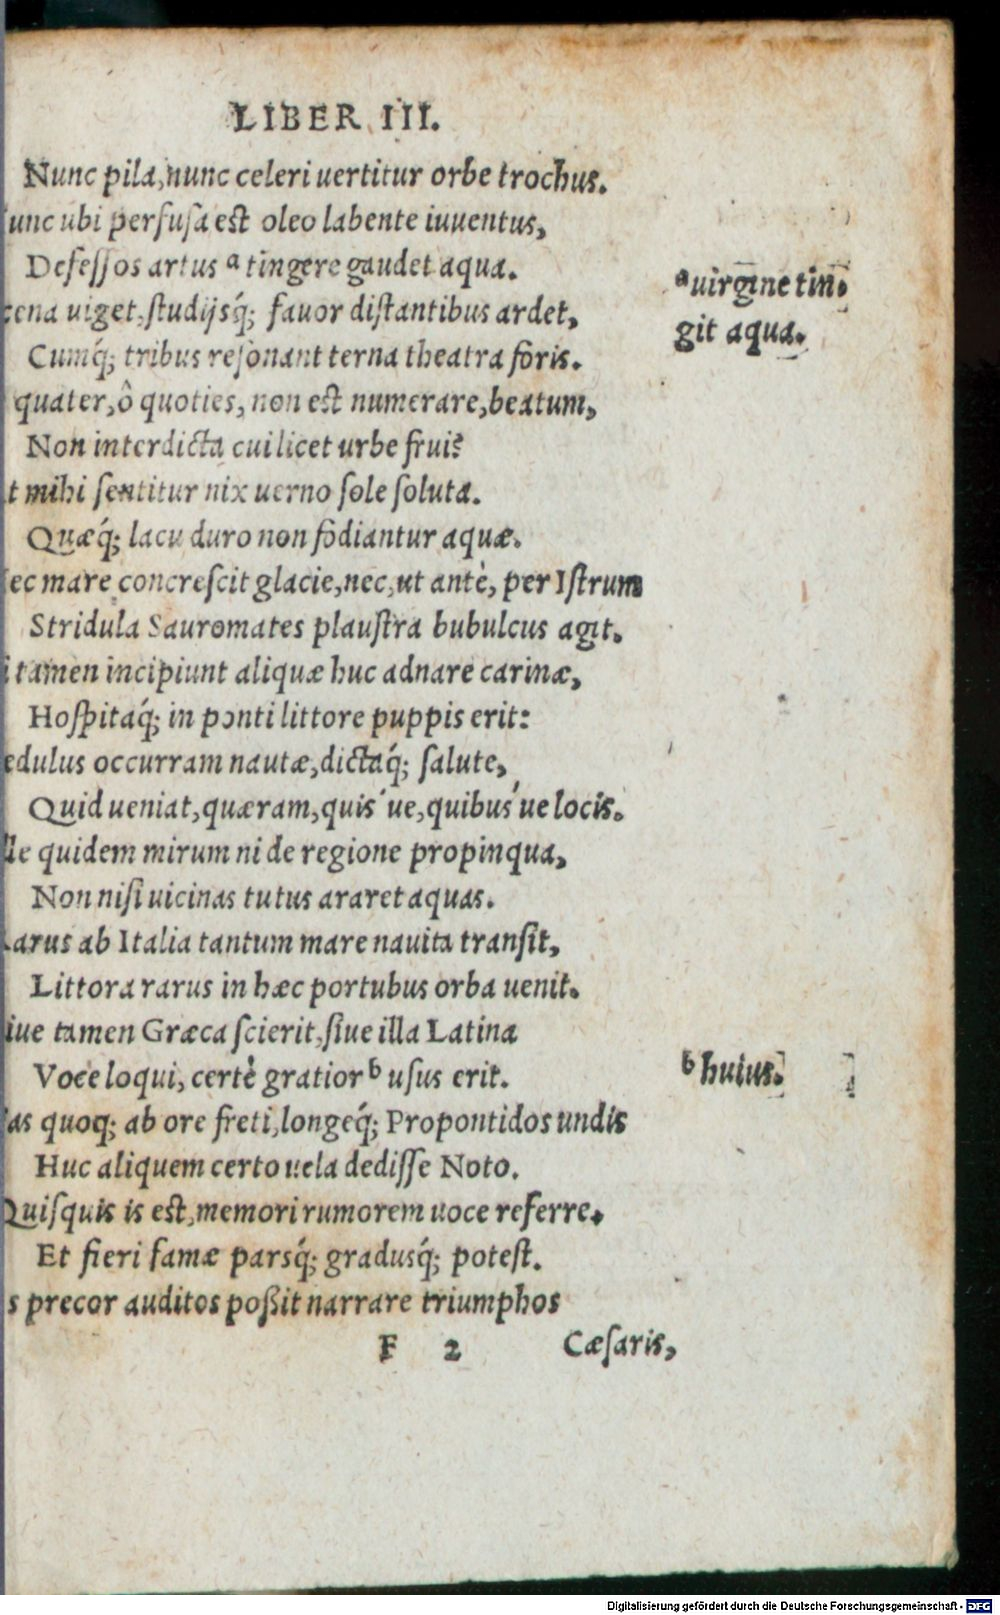 LIBER III.
Nunc pila, nunc celeri uertitur orbe trochus.
unc ubi perfusa est oleo labente iuuentus,
Defessos artus ᵃ tingere gaudet aqua.
cena uiget, studijsq́; fauor distantibus ardet,
Cumq́; tribus resonant terna theatra foris.
quater, ô quoties, non est numerare, beatum,
Non interdicta cui licet urbe frui?
t mihi sentitur nix uerno sole soluta.
Quæq́; lacu duro non fodiantur aquæ.
ec mare concrescit glacie, nec, ut antè, per Istrum
Stridula Sauromates plaustra bubulcus agit.
i tamen incipiunt aliquæ huc adnare carinæ,
Hospitaq́; in ponti littore puppis erit:
edulus occurram nautæ, dictaq́; salute,
Quid ueniat, quæram, quis´ue, quibus´ue locis.
lle quidem mirum ni de regione propinqua,
Non nisi uicinas tutus araret aquas.
arus ab Italia tantum mare nauita transit,
Littora rarus in hæc portubus orba uenit.
iue tamen Græca scierit, siue illa Latina
Voce loqui, certè gratior ᵇ usus erit.
as quoq; ab ore freti, longeq́; Propontidos undis
Huc aliquem certo uela dedisse Noto.
Quisquis is est, memori rumorem uoce referre,
Et fieri famæ parsq́; gradusq́; potest.
s precor auditos poßit narrare triumphos
F 2 Cæsaris,
ᵃ uirgine tin.
git aqua.
ᵇ huius.
Digitalisierung gefördert durch die Deutsche Forschungsgemeinschaft - DFG